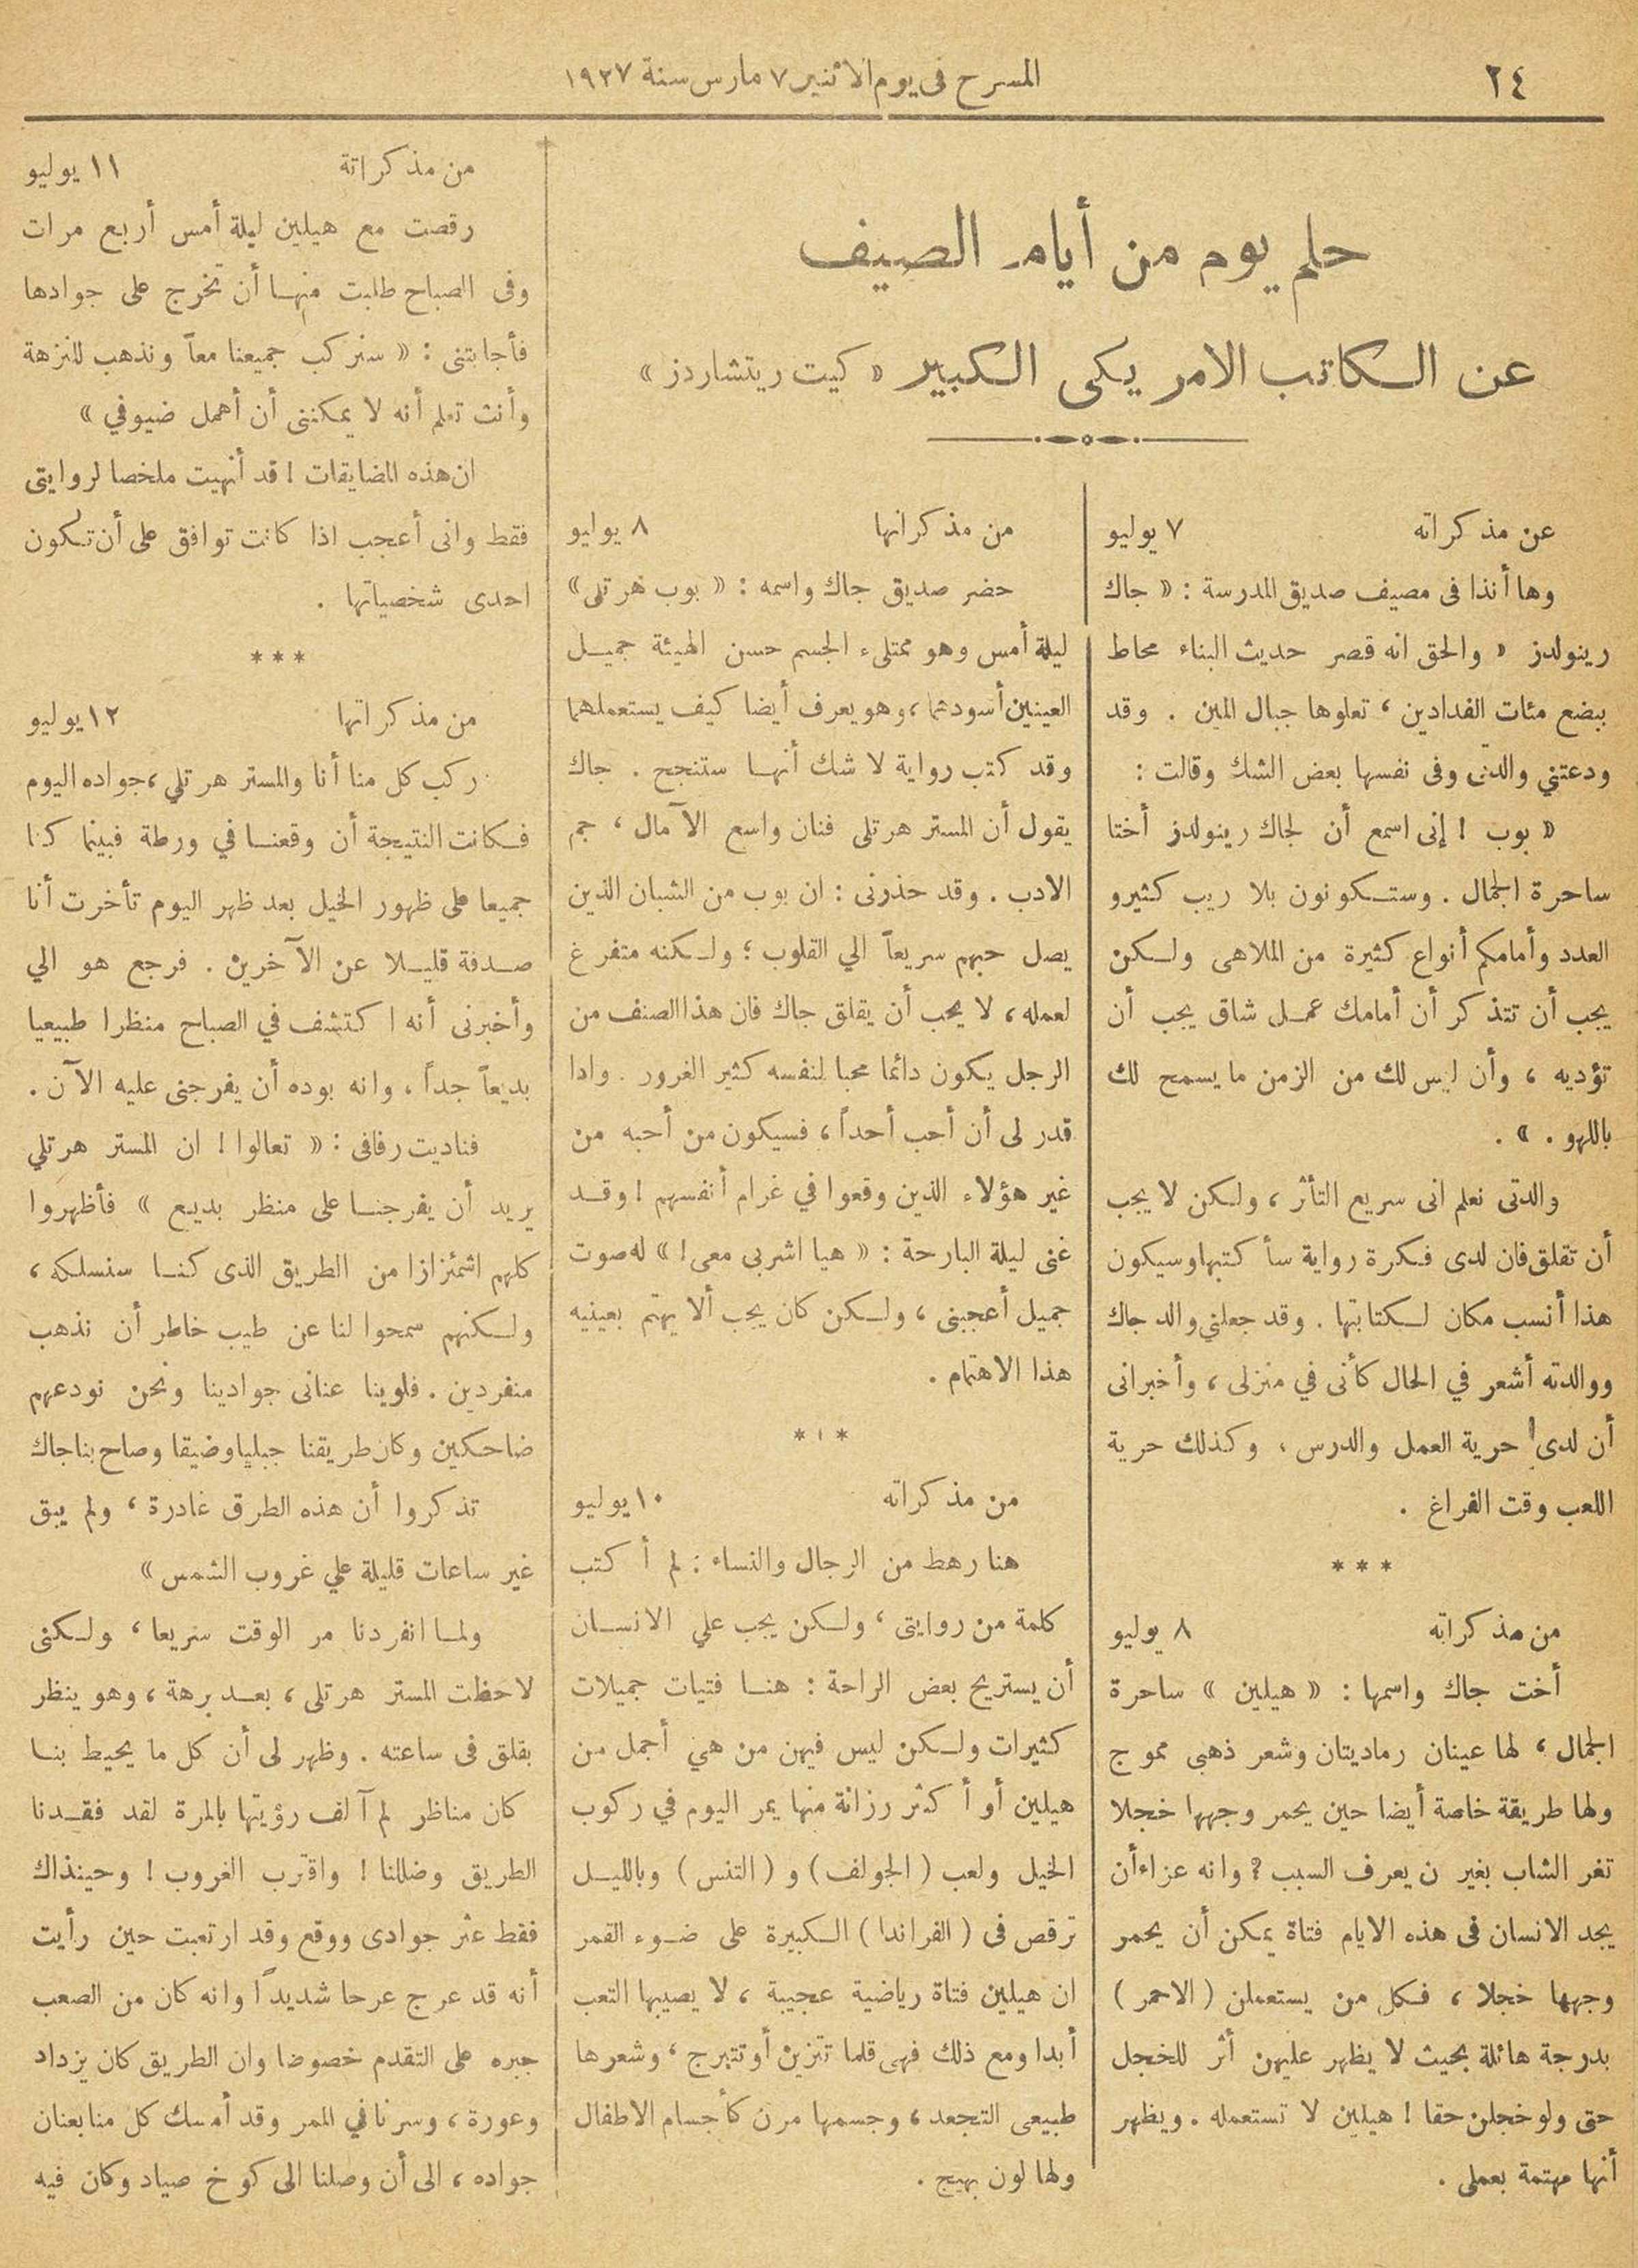 ٢٤
المسرح فى يوم الاثنين ٧ مارس سنة ١٩٢٧
حلم يوم من أيام الصيف
عن الكاتب الامريكى الكبير « كيت ريتشاردز »
عن مذكراته ٧ يوليو
وها أنذا فى مصيف صديق المدرسة : « جاك
رينولدز » والحق انه قصر حديث البناء محاط
ببضع مئات الفدادين ، تعلوها جبال المين . وقد
ودعتني والدتى وفى نفسها بعض الشك وقالت :
« بوب ! إنى اسمع أن لجاك رينولدز أختا
ساحرة الجمال . وستكونون بلا ريب كثيرو
العدد وأمامكم أنواع كثيرة من الملاهى ولكن
يجب أن تتذكر أن أمامك عمل شاق يجب أن
تؤديه ، وأن ليس لك من الزمن ما يسمح لك
باللهو . » .
والدتى نعلم انى سريع التأثر ، ولكن لا يجب
أن تقلق فان لدى فكرة رواية سأكتبها وسيكون
هذا أنسب مكان لكتابتها . وقد جعلني والد جاك
ووالدته أشعر في الحال كأنى في منزلى ، وأخبرانى
أن لدى حرية العمل والدرس ، وكذلك حرية
اللعب وقت الفراغ .
* * *
من مذكراته ٨ يوليو
أخت جاك واسمها : « هيلين » ساحرة
الجمال ، لها عينان رماديتان وشعر ذهبى مموج
ولها طريقة خاصة أيضا حين يحمر وجهها خجلا
تغر الشاب بغير ن يعرف السبب ? وانه عزاء أن
يجد الانسان فى هذه الايام فتاة يمكن أن يحمر
وجهها خجلا ، فكل من يستعملن ( الاحمر )
بدرجة هائلة بحيث لا يظهر عليهن أثر للخجل
حتى ولو خجلن حقا ! هيلين لا تستعمله . ويظهر
أنها مهتمة بعملى .
من مذكراتها ٨ يوليو
حضر صديق جاك واسمه : « بوب هرتلى »
ليلة أمس وهو ممتلىء الجسم حسن الهيئة جميل
العينين أسودهما ، وهو يعرف أيضا كيف يستعملهما
وقد كتب رواية لا شك أنها ستنجح . جاك
يقول أن المستر هرتلى فنان واسع الآمال ، جم
الادب . وقد حذرنى : ان بوب من الشبان الذين
يصل حبهم سريعاً الي القلوب ؛ ولكنه متفرغ
لعمله ، لا يجب أن يقلق جاك فان هذا الصنف من
الرجل يكون دائما محبا لنفسه كثير الغرور . واذا
قدر لى أن أحب أحداً ، فسيكون من أحبه من
غير هؤلاء الذين وقعوا في غرام أنفسهم ! وقد
غنى ليلة البارحة : « هيا اشربى معى ! » له صوت
جميل أعجبنى ، ولكن كان يجب ألا يهتم بعينيه
هذا الاهتمام .
* * *
من مذكراته ١٠ يوليو
هنا رهط من الرجال والنساء : لم أكتب
كلمة من روايتى ، ولكن يجب علي الانسان
أن يستريح بعض الراحة : هنا فتيات جميلات
كثيرات ولكن ليس فيهن من هي أجمل من
هيلين أو أكثر رزانة منها يمر اليوم في ركوب
الخيل ولعب ( الجولف ) و ( التنس ) وبالليل
ترقص فى ( الفراندا ) الكبيرة على ضوء القمر
ان هيلين فتاة رياضية عجيبة ، لا يصيبها التعب
أبدا ومع ذلك فهى قلما تتزين أو تتبرج ، وشعرها
طبيعى التجعد ، وجسمها مرن كأجسام الاطفال
ولها لون بهيج .
من مذكراتة ١١ يوليو
رقصت مع هيلين ليلة أمس أربع مرات
وفى الصباح طلبت منها أن تخرج على جوادها
فأجابتنى : « سنركب جميعنا معاً ونذهب للنزهة
وأنت تعلم أنه لا يمكننى أن أهمل ضيوفي »
ان هذه المضايقات ! قد أنهيت ملخصا لروايتى
فقط وانى أعجب اذا كانت توافق على أن تكون
احدى شخصياتها .
* * *
من مذكراتها ١٢ يوليو
ركب كل منا أنا والمستر هرتلي ، جواده اليوم
فكانت النتيجة أن وقعنا في ورطة فبينما كنا
جميعا على ظهور الخيل بعد ظهر اليوم تأخرت أنا
صدفة قليلا عن الآخرين . فرجع هو الي
وأخبرنى أنه اكتشف في الصباح منظرا طبيعيا
بديعاً جداً ، وانه بوده أن يفرجنى عليه الآن .
فناديت رفاقى : « تعالوا ! ان المستر هرتلي
يريد أن يفرجنا على منظر بديع » فأظهروا
كلهم اشمئزازا من الطريق الذى كنا سنسلكه ،
ولكنهم سمحوا لنا عن طيب خاطر أن نذهب
منفردين . فلوينا عنانى جوادينا ونحن نودعهم
ضاحكين وكان طريقنا جبليا وضيقا وصاح بنا جاك
تذكروا أن هذه الطرق غادرة ، ولم يبق
غير ساعات قليلة علي غروب الشمس »
ولما انفردنا مر الوقت سريعا ، ولكنى
لاحظت المستر هرتلى ، بعد برهة ، وهو ينظر
بقلق فى ساعته . وظهر لى أن كل ما يحيط بنا
كان مناظر لم آلف رؤيتها بالمرة لقد فقدنا
الطريق وضللنا ! واقترب الغروب ! وحينذاك
فقط عثر جوادى ووقع وقد ارتعبت حين رأيت
أنه قد عرج عرحا شديداً وانه كان من الصعب
جبره على التقدم خصوضا وان الطريق كان يزداد
وعورة ، وسرنا في الممر وقد أمسك كل منا بعنان
جواده ، الى أن وصلنا الى كوخ صياد وكان فيه